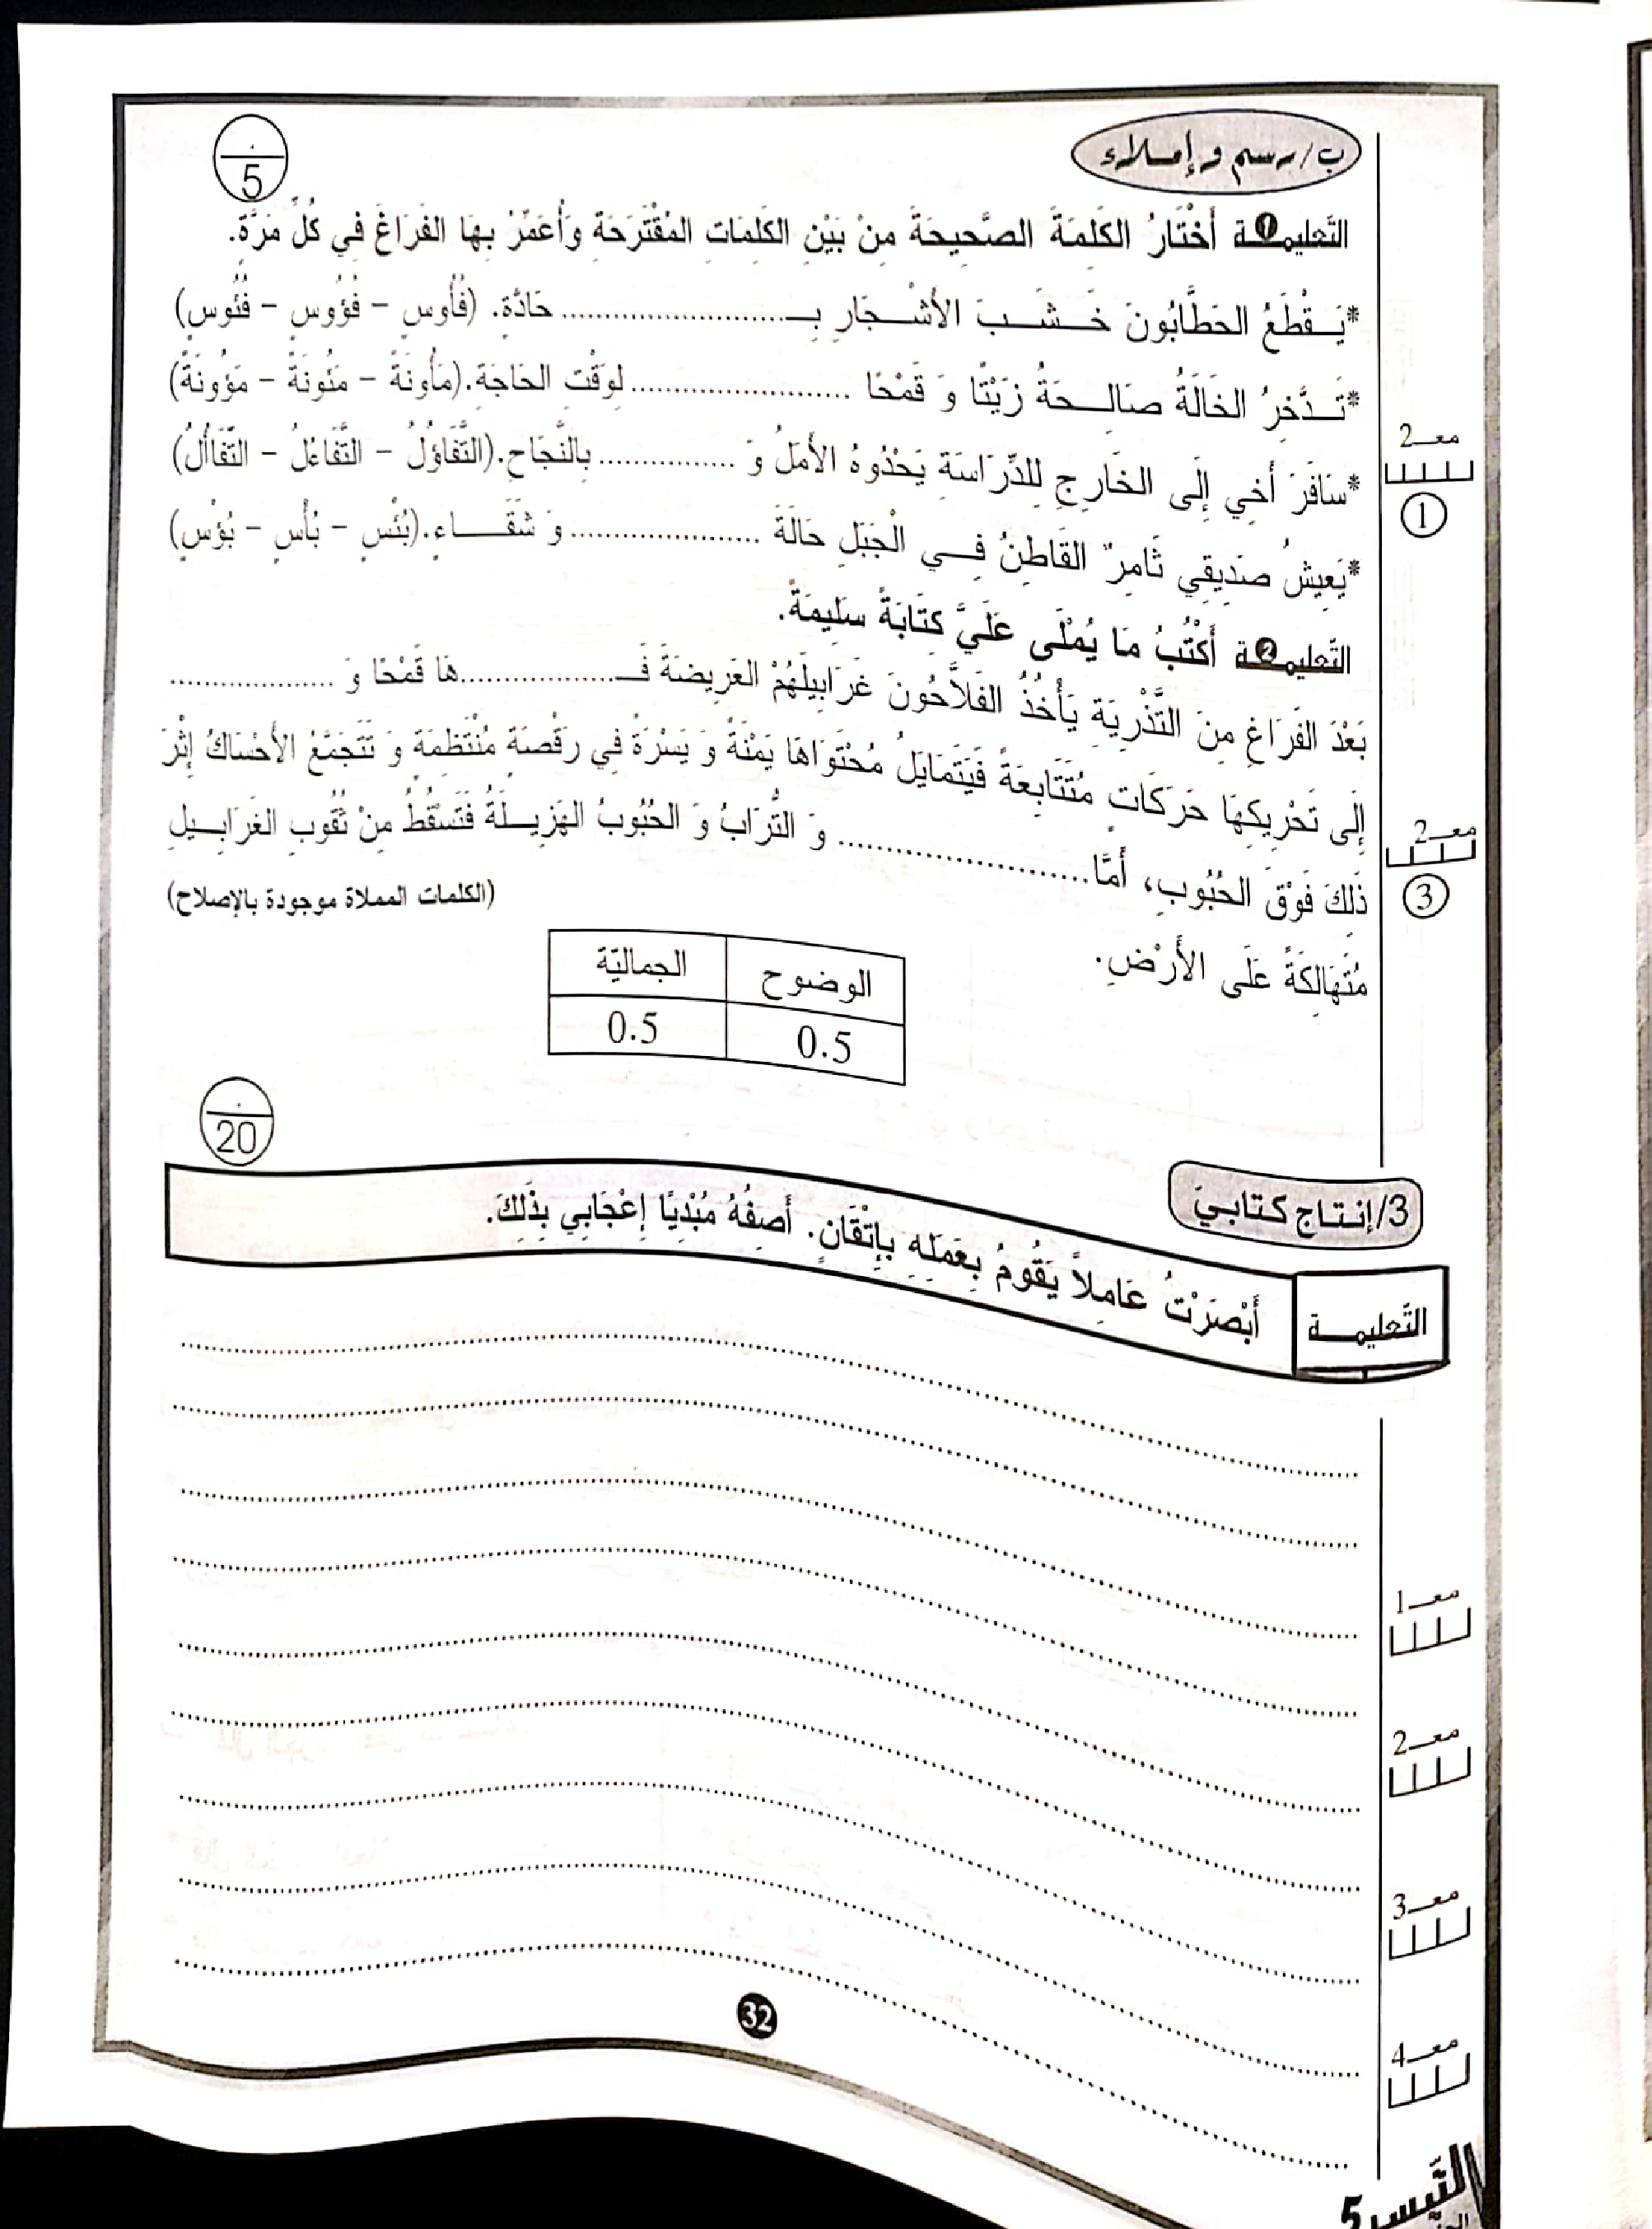 ب/رسم وإملاء
5
التَّعليمة 1 أَخْتَارُ الكَلِمَةَ الصَّحِيحَةَ مِنْ بَيْنِ الكَلِمَاتِ المُقْتَرَحَةِ وَأُعَمِّرُ بِهَا الفَرَاغَ فِي كُلِّ مَرَّةٍ.
*يَـقْطَعُ الحَطَّابُونَ خَـشَـبَ الأَشْـجَارِ بِـ.................... حَادَّةٍ. (فُأُوسٍ – فُؤُوسٍ – فُئُوسٍ)
*تَـدَّخِرُ الخَالَةُ صَالِـحَةُ زَيْتًا وَ قَمْحًا .................... لِوَقْتِ الحَاجَةِ.(مَأُونَةً – مَئُونَةً – مَؤُونَةً)
*سَافَرَ أَخِي إِلَى الخَارِجِ لِلدِّرَاسَةِ يَحْدُوهُ الأَمَلُ وَ .................... بِالنَّجَاحِ.(التَّفَاؤُلُ – التَّفَائُلُ – التَّفَاأُلُ)
*يَعِيشُ صَدِيقِي ثَامِرٌ القَاطِنُ فِـي الْجَبَلِ حَالَةَ .................... وَ شَقَـاءٍ.(بُئْسٍ – بُأْسٍ – بُؤْسٍ)
التَّعليمة 2 أَكْتُبُ مَا يُمْلَى عَلَيَّ كِتَابَةً سَلِيمَةً.
بَعْدَ الفَرَاغِ مِنَ التَّذْرِيَةِ يَأْخُذُ الفَلاَّحُونَ غَرَابِيلَهُمْ العَرِيضَةَ فَـ....................هَا قَمْحًا وَ ....................
إِلَى تَحْرِيكِهَا حَرَكَاتٍ مُتَتَابِعَةً فَيَتَمَايَلُ مُحْتَوَاهَا يَمْنَةً وَ يَسْرَةً فِي رَقْصَةٍ مُنْتَظِمَةٍ وَ تَتَجَمَّعُ الأَحْسَاكُ إِثْرَ
ذَلِكَ فَوْقَ الحُبُوبِ، أَمَّا.................... وَ التُّرَابُ وَ الحُبُوبُ الهَزِيـلَةُ فَتَسْقُطُ مِنْ ثُقُوبِ الغَرَابِـيلِ
مُتَهَالِكَةً عَلَى الأَرْضِ.
(الكلمات المملاة موجودة بالإصلاح)
معـ2
1
معـ2
3
الوضوح الجماليّة
0.5 0.5
20
3/إنتاج كتابيّ
التَّعليمـة أَبْصَرْتُ عَامِلاً يَقُومُ بِعَمَلِهِ بِإِتْقَانٍ. أَصِفُهُ مُبْدِيًا إِعْجَابِي بِذَلِكَ.
معـ1
معـ2
معـ3
معـ4
32